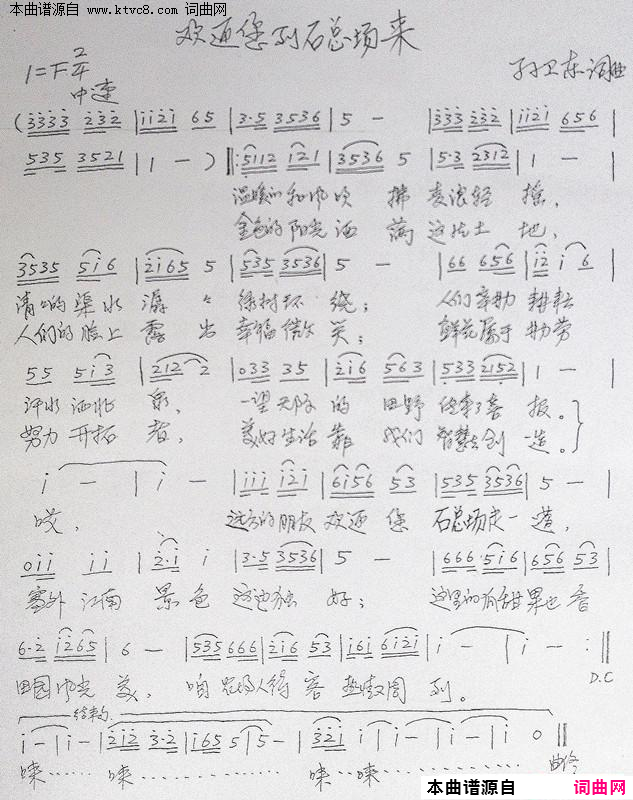 本曲谱源自 www.ktvc8.com 词曲网
欢迎您到石总场来
1=F 2/4
中速
孙卫东词曲
(3333 232 | 1121 65 | 3·5 3536 | 5 - | 333 232 | 1121 656 |
535 3521 | 1 - ) ‖: 5112 121 | 3536 5 | 5·3 2312 | 1 - |
温暖的和风吹 拂 麦浪轻 摇,
金色的阳光洒 满 这片土 地,
3535 516 | 2165 5 | 535 3536 | 5 - | 66 656 | 12 1 6 |
清清的渠水 潺 々 绿树环 绕; 人们辛勤 耕耘
人们的脸上 露 出 幸福微 笑; 鲜花属于 勤劳
55 513 | 212 2 | 033 35 | 216 563 | 533 2152 | 1 - |
汗水洒 一望无际 的 田野 传来了喜 报。
努力开拓 者, 美好生活 靠 我们 智慧去创 造。
1 - | 1 - | 111 121 | 6156 53 | 535 3536 | 5 - |
哎, 远方的朋友 欢迎 您 石总场走一遭,
011 11 | 2·1 1 | 3·5 3536 | 5 - | 666 516 | 656 53 |
塞外 江南 景 色 这边独 好; 这里的 甜 果也香
6·2 1265 | 6 - | 535666 | 216 53 | 161 6121 | 1 - | 1 - :‖
田园风光 美, 咱农场人待 客 热 周 到。
D.C
结束句
1 - | 1 - | 212 3·2 | 165 5 | 5 - | 321 1 | 1 - | 1 - | 1 0 ‖
来…… 来…… 来…来……
本曲谱源自 词曲网